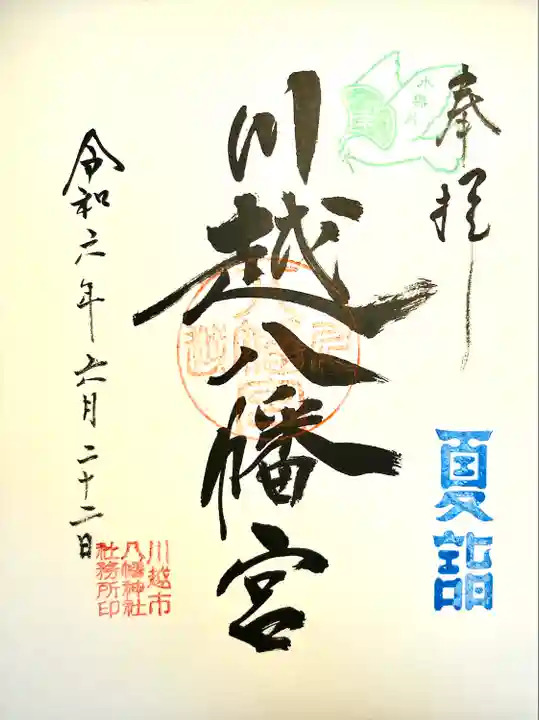 奉拝
夏詣
川越八幡宮
川越市
八幡神社
社務所印
令和六年六月二十二日